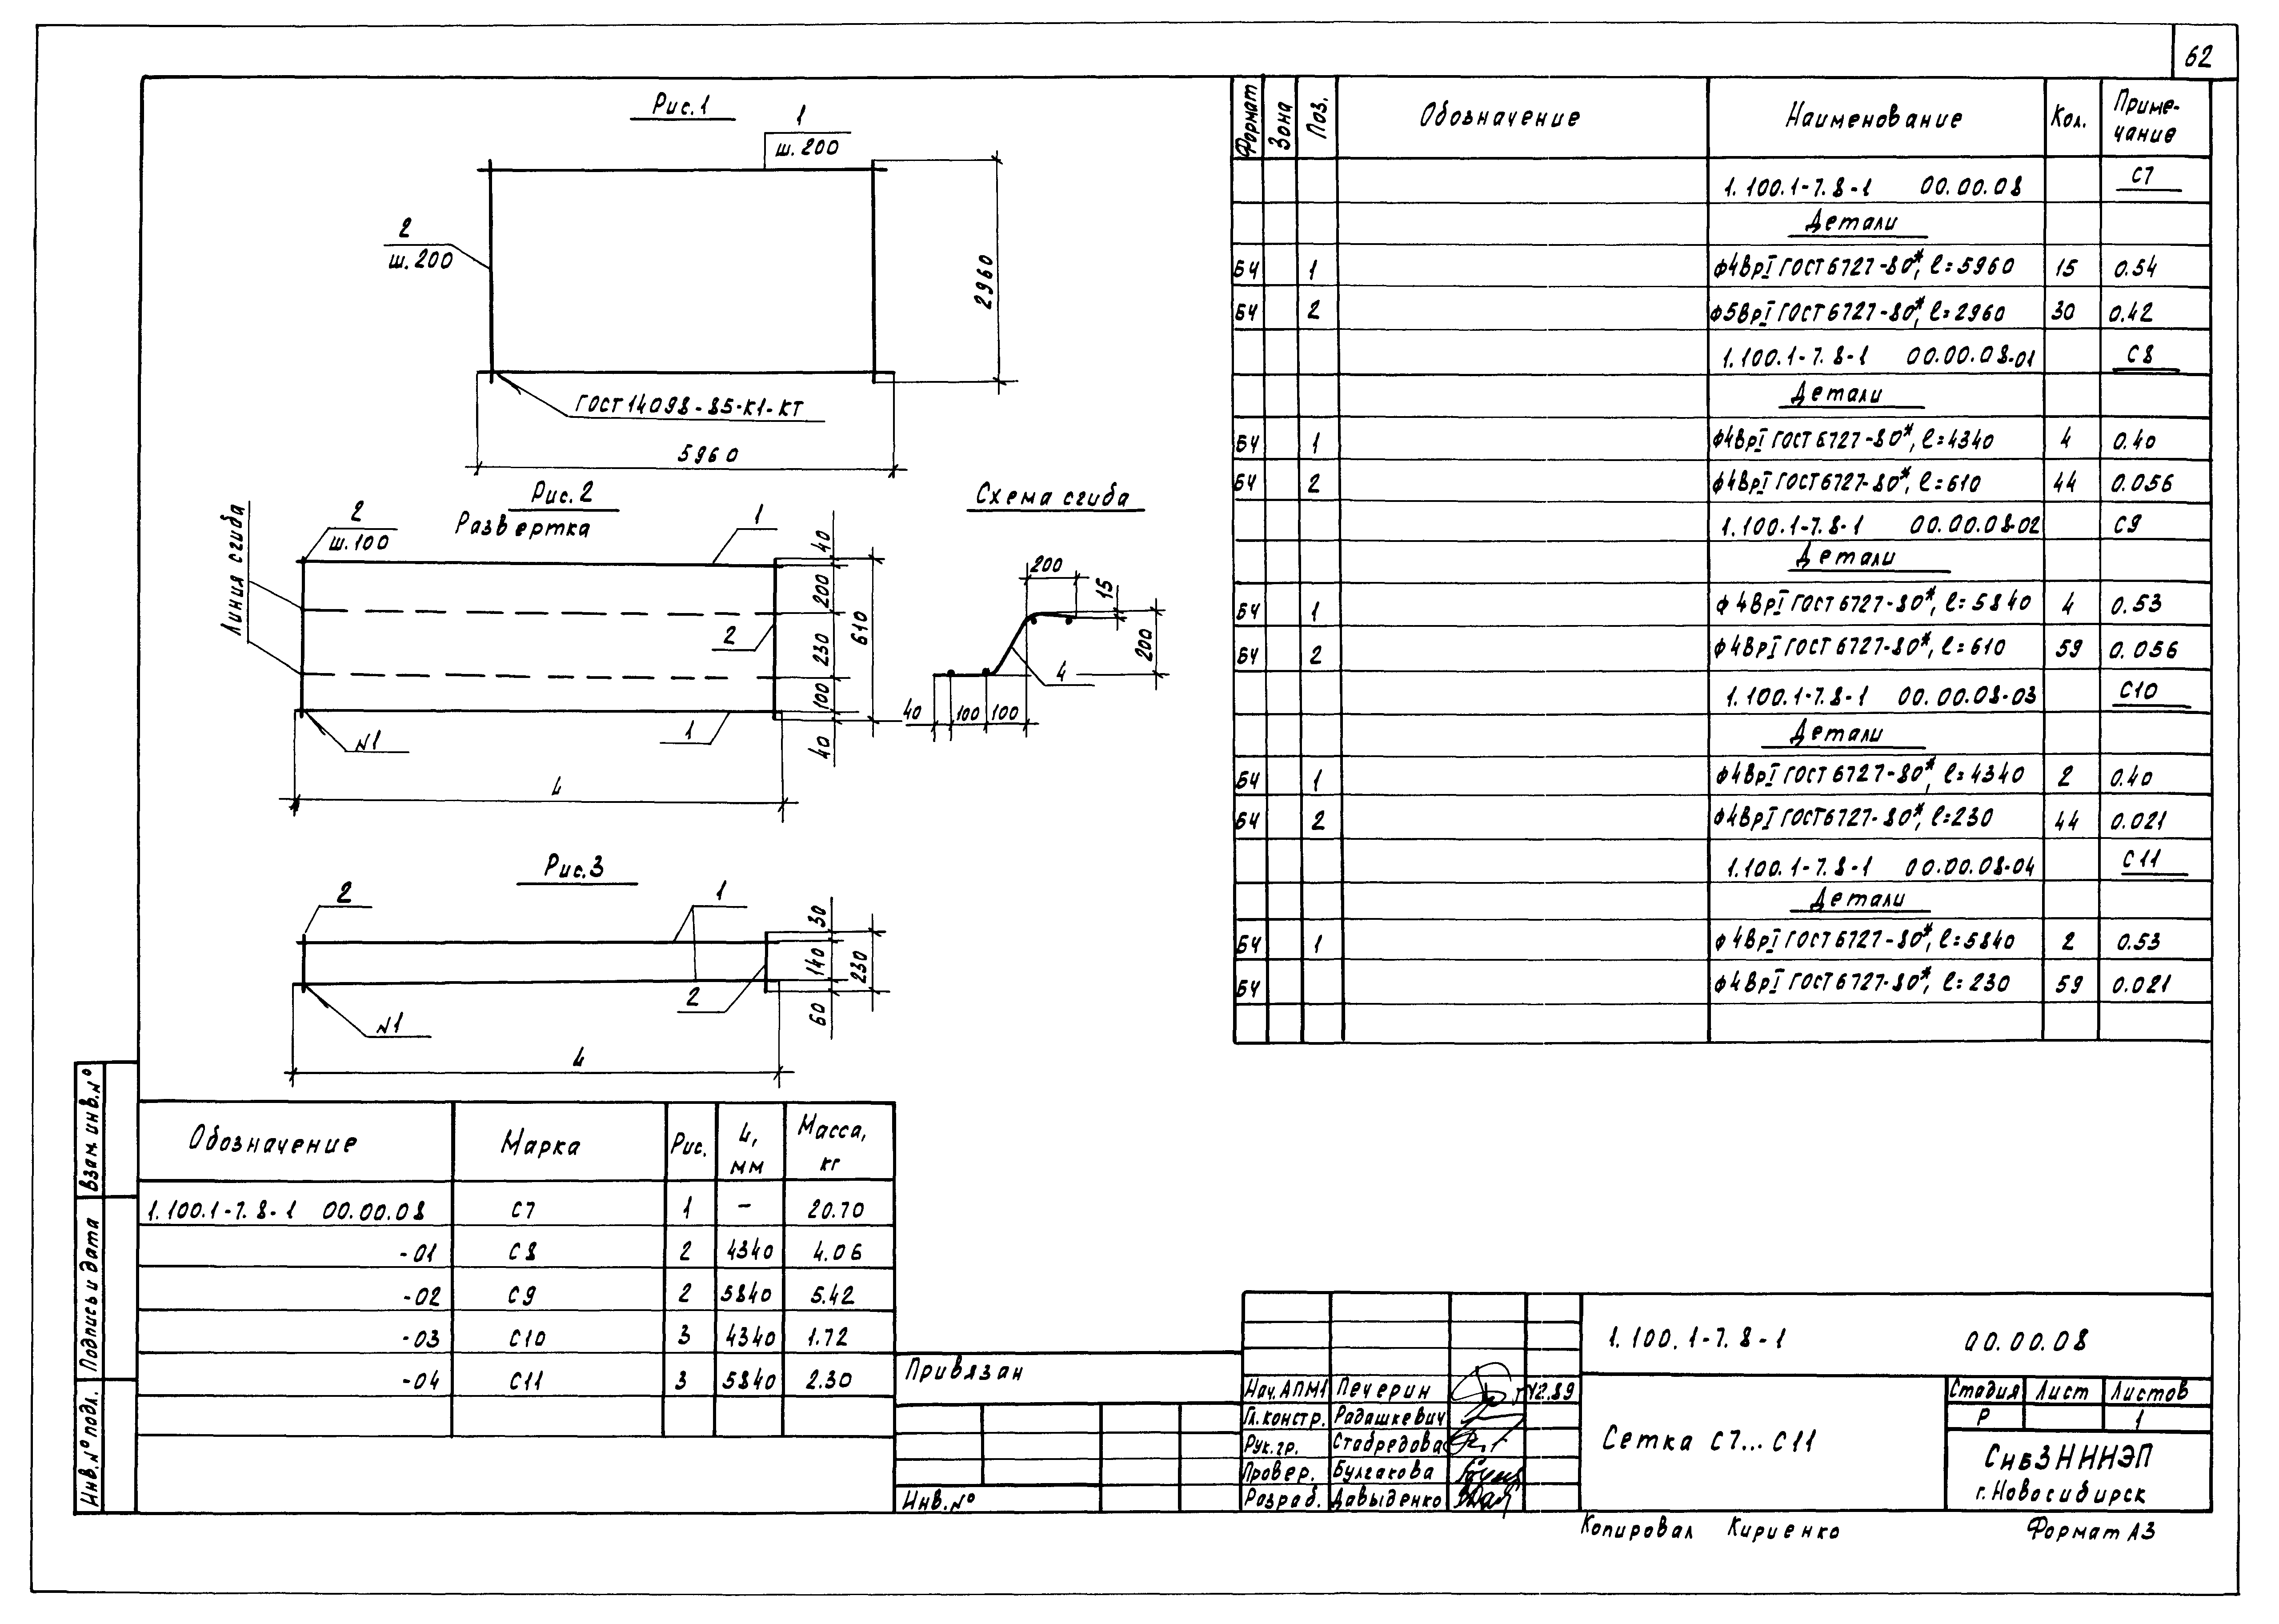 62
Рис.1
1
ш.200
2
ш.200
2960
ГОСТ 14098-85-К1-КТ
5960
Рис.2
Развертка
Линия сгиба
2
ш.100
1
2
1
№1
40
200
230
100
40
610
L
Схема сгиба
200
15
200
4
40
100
100
Рис.3
2
1
2
№1
30
140
60
230
L
Формат Зона Поз. Обозначение Наименование Кол. Приме-
чание
1.100.1-7.8-1 00.00.08 С7
Детали
БЧ 1 ф4ВрI ГОСТ 6727-80*, ℓ=5960 15 0.54
БЧ 2 ф5ВрI ГОСТ 6727-80*, ℓ=2960 30 0.42
1.100.1-7.8-1 00.00.08-01 С8
Детали
БЧ 1 ф4ВрI ГОСТ 6727-80*, ℓ=4340 4 0.40
БЧ 2 ф4ВрI ГОСТ 6727-80*, ℓ=610 44 0.056
1.100.1-7.8-1 00.00.08-02 С9
Детали
БЧ 1 ф4ВрI ГОСТ 6727-80*, ℓ=5840 4 0.53
БЧ 2 ф4ВрI ГОСТ 6727-80*, ℓ=610 59 0.056
1.100.1-7.8-1 00.00.08-03 С10
Детали
БЧ 1 ф4ВрI ГОСТ 6727-80*, ℓ=4340 2 0.40
БЧ 2 ф4ВрI ГОСТ 6727-80*, ℓ=230 44 0.021
1.100.1-7.8-1 00.00.08-04 С11
Детали
БЧ 1 ф4ВрI ГОСТ 6727-80*, ℓ=5840 2 0.53
БЧ ф4ВрI ГОСТ 6727-80*, ℓ=230 59 0.021
Обозначение Марка Рис. L,
мм Масса,
кг
1.100.1-7.8-1 00.00.08 С7 1 - 20.70
-01 С8 2 4340 4.06
-02 С9 2 5840 5.42
-03 С10 3 4340 1.72
-04 С11 3 5840 2.30
Взам. инв. №
Подпись и дата
Инв. № подл.
Привязан
Инв. №
Нач. АПМ1 Печерин 12.89
Гл. констр. Радашкевич
Рук. гр. Стабредова
Провер. Булгакова
Разраб. Давыденко
1.100.1-7.8-1 00.00.08
Сетка С7...С11
Стадия Лист Листов
Р 1
СибЗНИИЭП
г. Новосибирск
Копировал Кириенко Формат А3